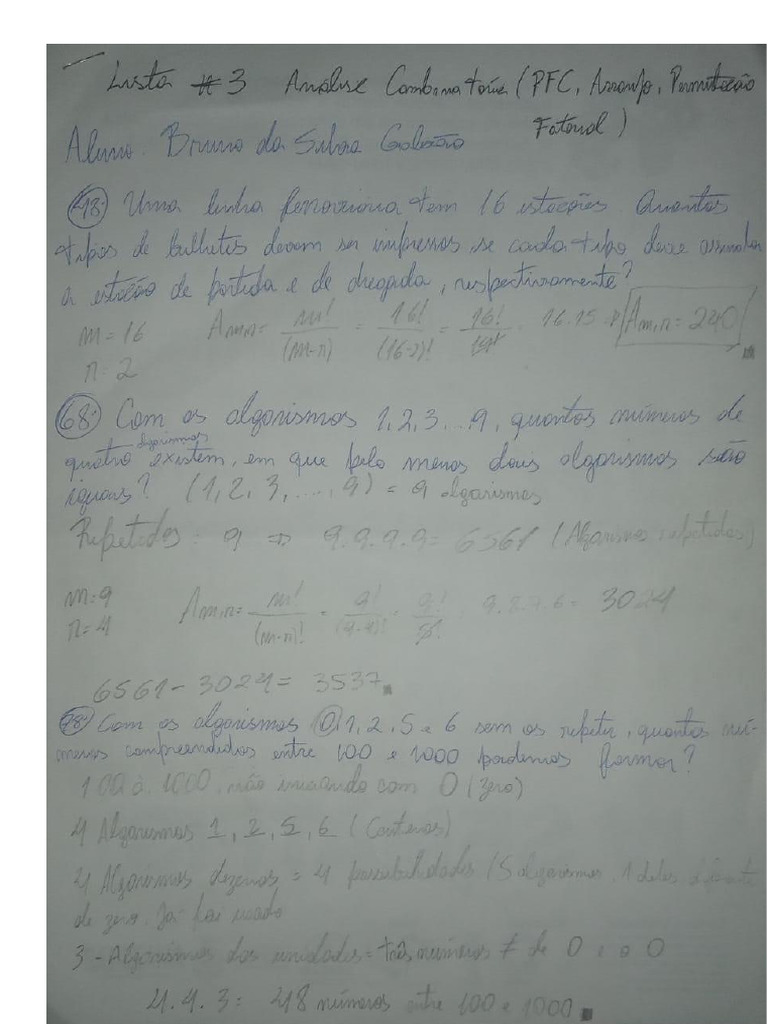 Lista #3 Análise Combinatória (PFC, Arranjo, Permutação
Fatorial)
Aluno: Bruno da Silva Galvão
48) Uma linha ferroviária tem 16 estações. Quantos
tipos de bilhetes devem ser impressos, se cada tipo deve assinalar
a estação de partida e de chegada, respectivamente?
m = 16
n = 2
Am,n = m!/(m-n)! = 16!/(16-2)! = 16!/14! = 16.15 => Am,n = 240
68) Com os algarismos 1,2,3...9, quantos números de
quatro algarismos existem, em que pelo menos dois algarismos são
iguais? (1, 2, 3, ..., 9) = 9 algarismos
Repetidos: 9 => 9.9.9.9 = 6561 (Algarismos repetidos)
m = 9
n = 4
Am,n = m!/(m-n)! = 9!/(9-4)! = 9!/5! = 9.8.7.6 = 3024
6561 - 3024 = 3537
78) Com os algarismos 0,1,2,5 e 6 sem os repetir, quantos nú-
meros compreendidos entre 100 e 1000 podemos formar?
100 à 1000, não iniciando com 0 (zero)
4 Algarismos 1, 2, 5, 6 (Centenas)
4 Algarismos dezenas = 4 possibilidades (5 algarismos. 1 deles diferente
de zero. Já foi usado
3 - Algarismos das unidades = três números ≠ de 0 e o 0
4.4.3 = 48 números entre 100 e 1000.